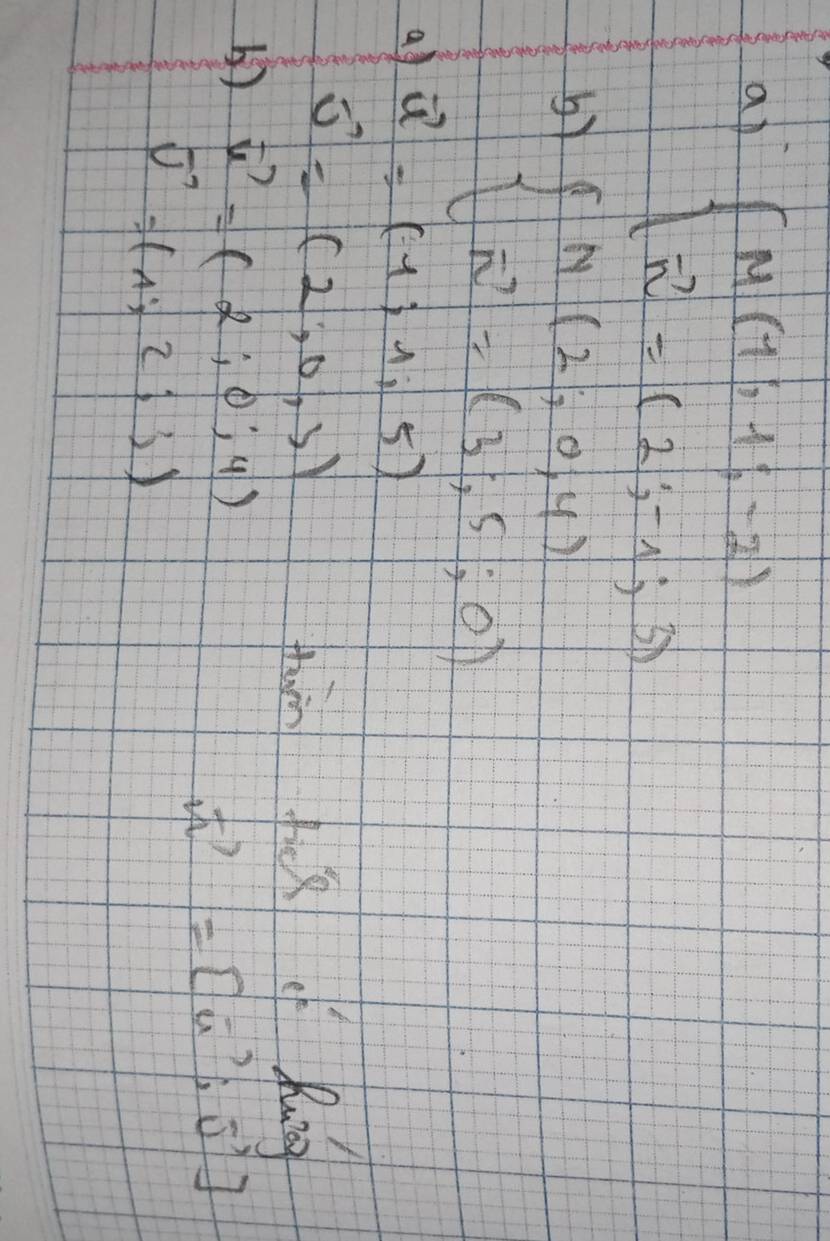 a) { M (1; 1; -2)
n⃗ = (2; -1; 3)
b) { M (2; 0, 4)
n⃗ = (3; 5; 0)
a) u⃗ = (-1; 1; 5)
v⃗ = (2; 0; 3)
b) u⃗ = (2; 0; 4)
v⃗ = (1; 2; 3)
tính tích có hướng
n⃗ = [u⃗; v⃗]